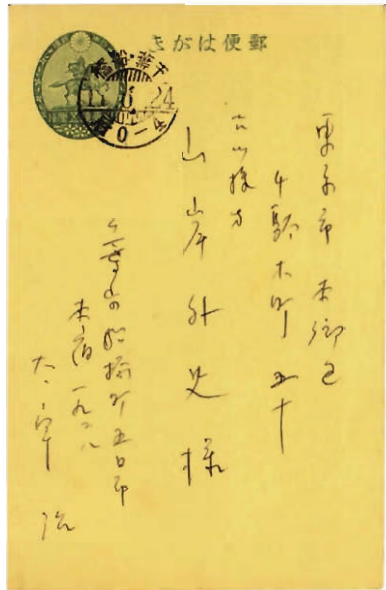 郵便はがき
千葉・船橋
11 6 24
東京市 本郷区
千駄木町 五十
様方
山岸外史様
千葉県船橋町五日市
本宿一九二八
太宰 治